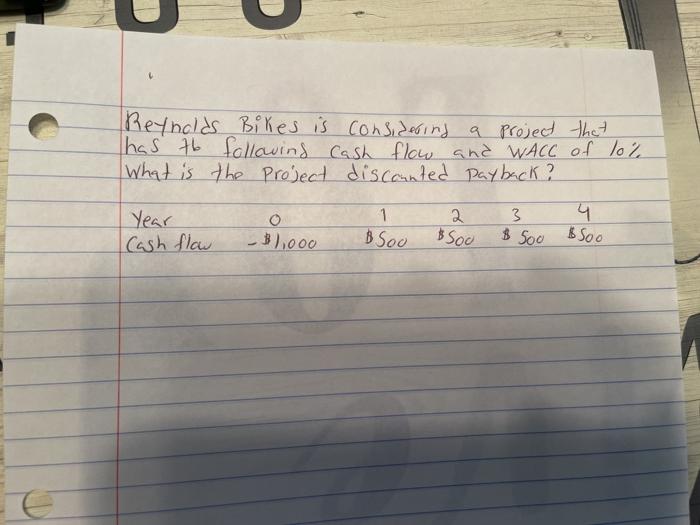 Reynolds Bikes is considering a project that
has the following cash flow and WACC of 10%
What is the project discounted payback?
Year 0 1 2 3 4
Cash flow -$1,000 $500 $500 $500 $500